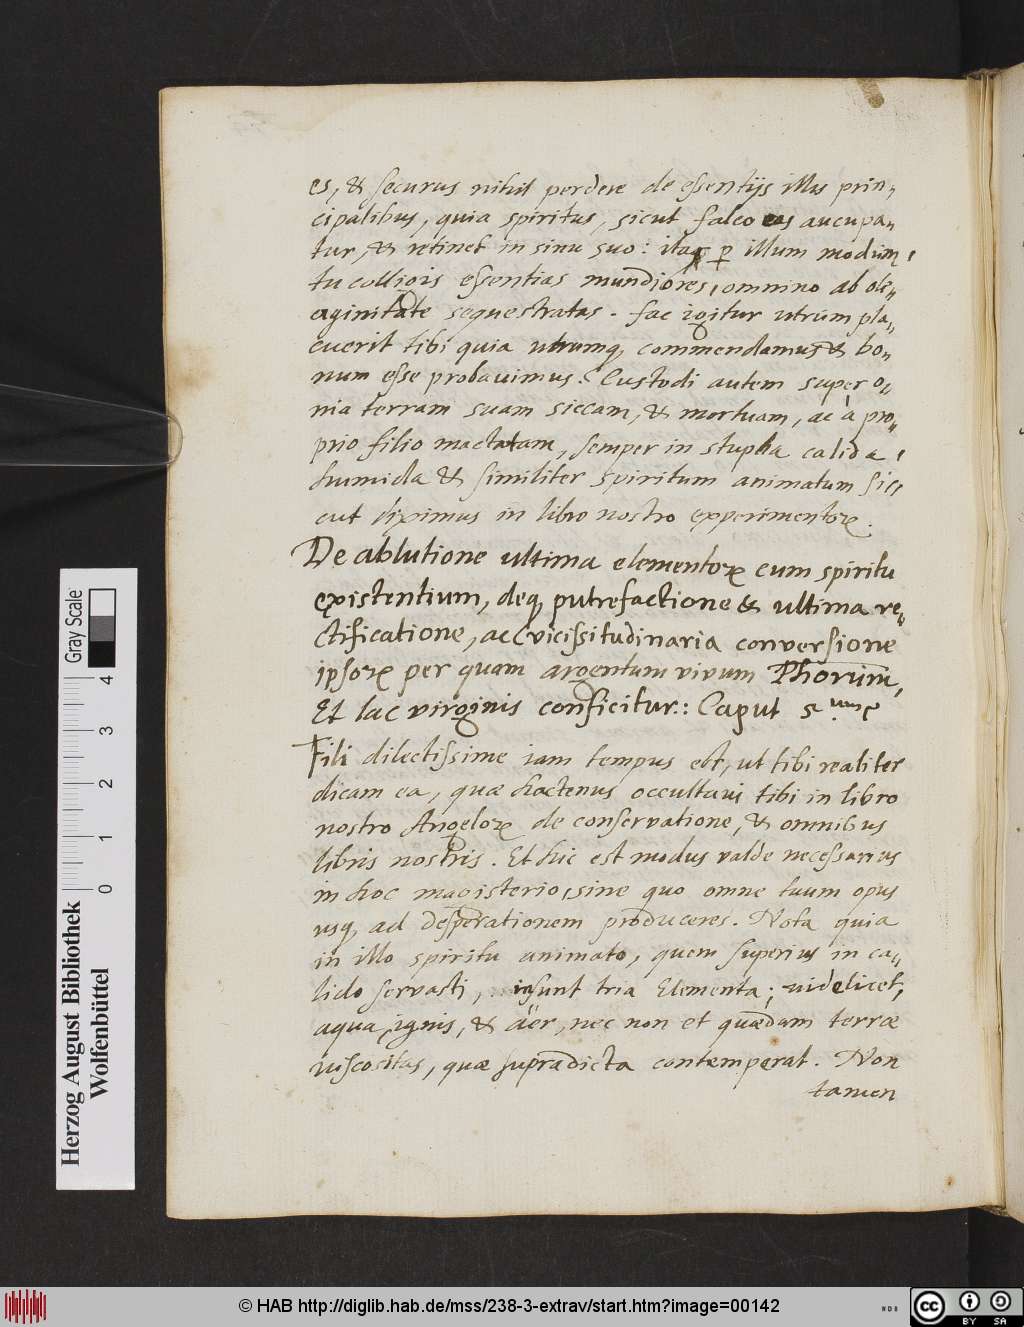 es, & securus nihil perdere de essentijs illis prin-
cipalibus, quia spiritus, sicut falco eas aucupa-
tur, & retinet in sinu suo: itaq; p illum modum,
tu colligis essentias mundiores, omnino ab ole-
aginitate sequestratas. fac igitur utrum pla-
cuerit tibi quia utrumq, commendamus & bo-
num esse probavimus. Custodi autem super o-
nia terram suam siccam, & mortuam, ac à pro-
prio filio mactatam, semper in stupha calida,
humida & similiter spiritum animatum sic-
cut diximus in libro nostro experimentoꝝ.
De ablutione ultima elementoꝝ cum spiritu
existentium, deq, putrefactione & ultima re-
ctificatione, ac vicissitudinaria conversione
ipsoꝝ per quam argentum vivum Phorum,
Et lac virginis conficitur.: Caput 5um
Fili dilectissime iam tempus est, ut tibi realiter
dicam ea, quæ hactenus occultavi tibi in libro
nostro Angeloꝝ de conservatione, & omnibus
libris nostris. Et hic est modus valde necessarius
in hoc magisterio, sine quo omne tuum opus
usq, ad desperationem produceres. Nota quia
in illo spiritu animato, quem superius in ca-
lido servasti, insunt tria Elementa; videlicet,
aqua, ignis, & aër, nec non et quædam terræ
viscositas, quæ supradicta contemperat. Non
tamen
Herzog August Bibliothek
Wolfenbüttel
0 1 2 3 4
Gray Scale
© HAB http://diglib.hab.de/mss/238-3-extrav/start.htm?image=00142
NDB
cc BY SA